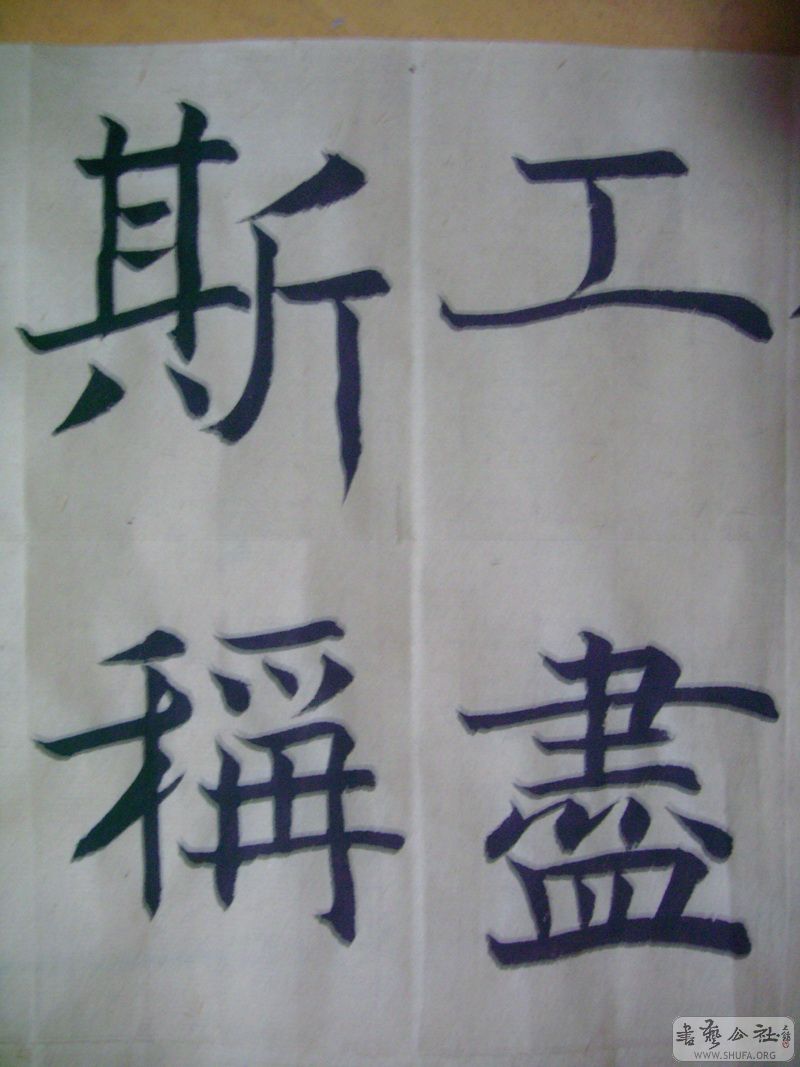 工盡
斯稱
書藝公社
WWW.SHUFA.ORG